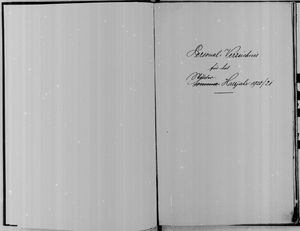 Personal-Verzeichnis
für das
Winter
Sommer Halbjahr 1920/21